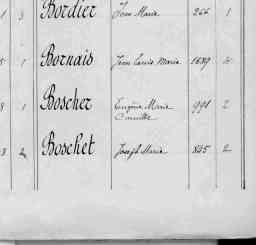 3 Bordier Jean Marie 266 1
5 1 Bornais Jean Louis Marie 1689
8 1 Boscher Eugène Marie 991 2
Camille
3 2 Boschet Joseph Marie 845 2